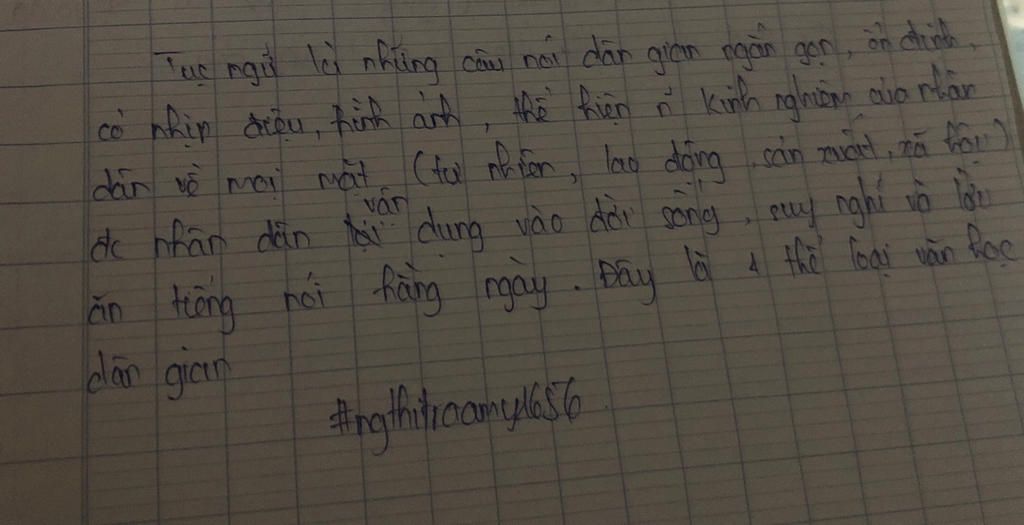 Tục ngữ là những câu nói dân gian ngắn gọn, ổn định,
có nhịp điệu, hình ảnh, thể hiện n~ kinh nghiệm của nhân
dân về mọi mặt (tự nhiên, lao động, sản xuất, xã hội)
đc nhân dân vận dụng vào đời sống, suy nghĩ và lời
ăn tiếng nói hằng ngày. Đây là 1 thể loại văn học
dân gian
#ngthitraamy1656